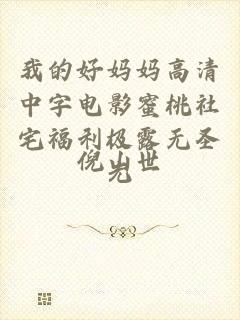 我的好妈妈高清
中字电影蜜桃社
宅福利极露无圣
光
倪出世